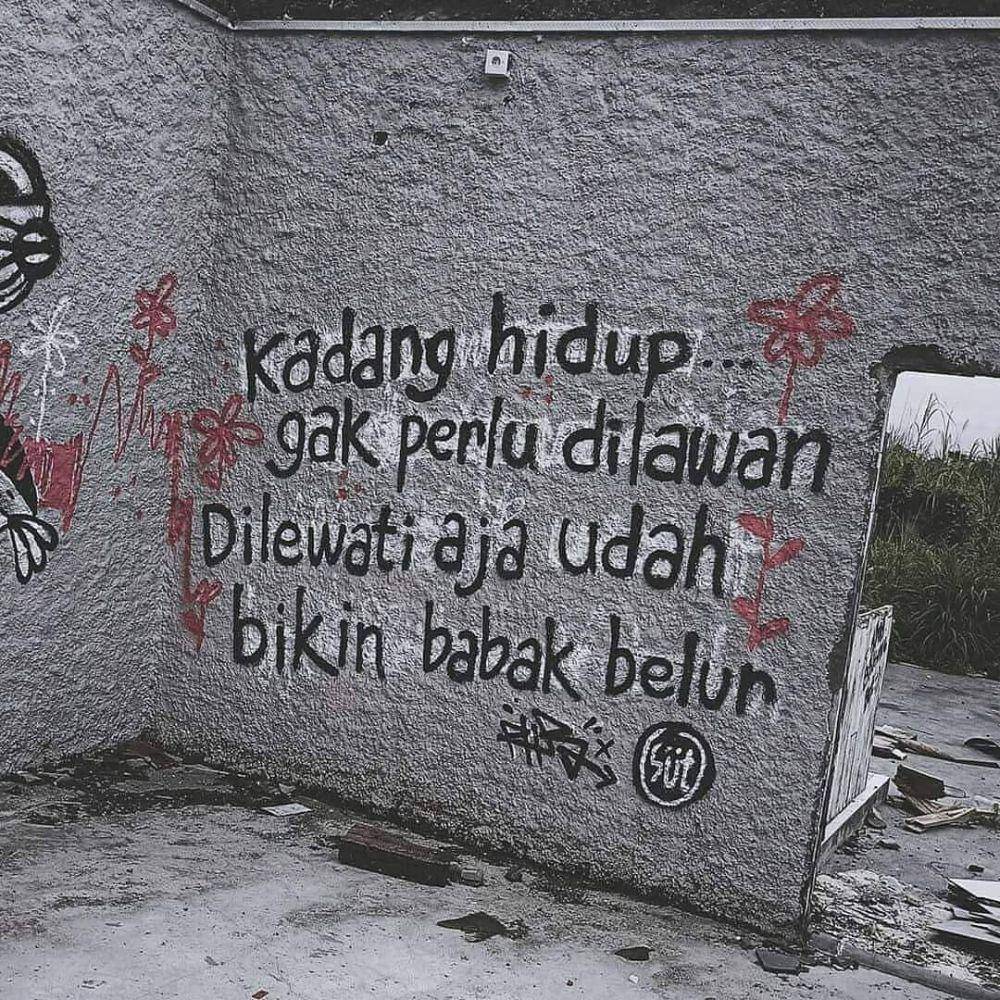 Kadang hidup...
gak perlu dilawan
Dilewati aja udah
bikin babak belur
Süt